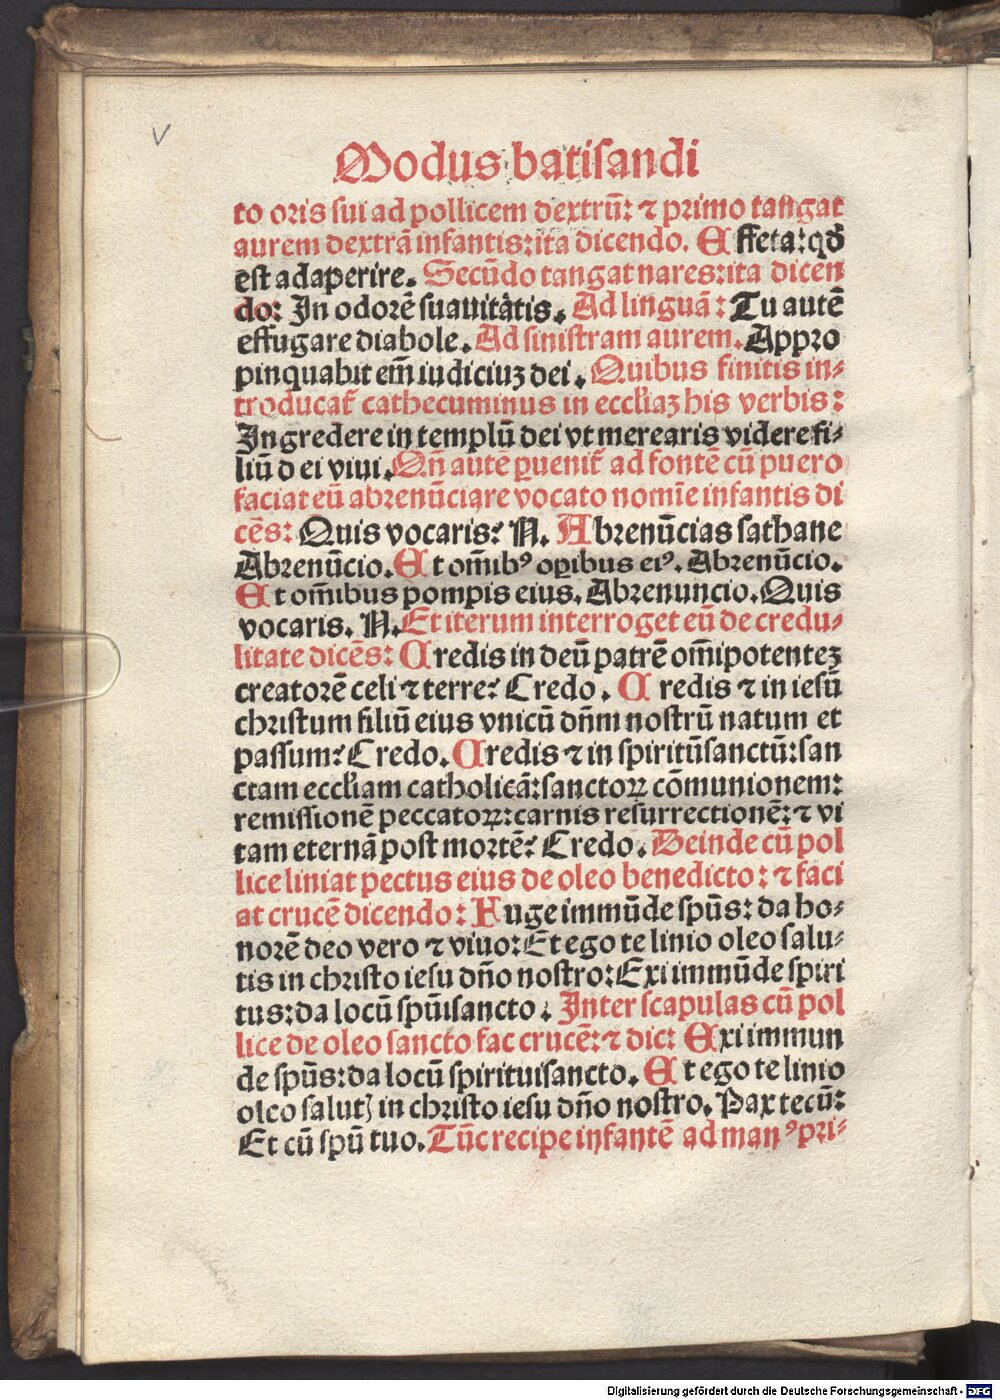 v
Modus batisandi
to oris sui ad pollicem dextrū: ⁊ primo tangat
aurem dextrā infantis: ita dicendo. Effeta: qđ
est adaperire. Secūdo tangat nares: ita dicen
do: In odorē suauitatis. Ad linguā: Tu autē
effugare diabole. Ad sinistram aurem. Appro
pinquabit em̄ iudiciuꝫ dei. Quibus finitis in⸗
troducat̄ cathecuminus in eccl̄iaꝫ his verbis:
Ingredere in templū dei vt merearis videre fi⸗
liū dei viui. Qn̄ autē ꝑuenit̄ ad fontē cū puero
faciat eū abrenūciare vocato nomīe infantis di
cēs: Quis vocaris? N. Abrenūcias sathane
Abrenūcio. Et om̄ibꝰ oꝑibus eiꝰ. Abrenūcio.
Et om̄ibus pompis eius. Abrenuncio. Quis
vocaris. N. Et iterum interroget eū de credu⸗
litate dicēs: Credis in deū patrē om̄ipotenteꝫ
creatorē celi ⁊ terre? Credo. Credis ⁊ in iesū
christum filiū eius vnicū dn̄m nostrū natum et
passum? Credo. Credis ⁊ in spiritūsanctū: san
ctam eccl̄iam catholicā: sanctoꝝ cōmunionem:
remissionē peccatoꝝ: carnis resurrectionē: ⁊ vi
tam eternā post mortē? Credo. Deinde cū pol
lice liniat pectus eius de oleo benedicto: ⁊ faci
at crucē dicendo: Fuge immūde spūs: da ho⸗
norē deo vero ⁊ viuo: Et ego te linio oleo salu⸗
tis in christo iesu dn̄o nostro: Exi immūde spiri
tus: da locū spūisancto. Inter scapulas cū pol
lice de oleo sancto fac crucē: ⁊ dic: Exi immun
de spūs: da locū spirituisancto. Et ego te linio
oleo salutꝭ in christo iesu dn̄o nostro. Pax tecū:
Et cū spū tuo. Tūc recipe infantē ad manꝰ pri⸗
Digitalisierung gefördert durch die Deutsche Forschungsgemeinschaft - DFG